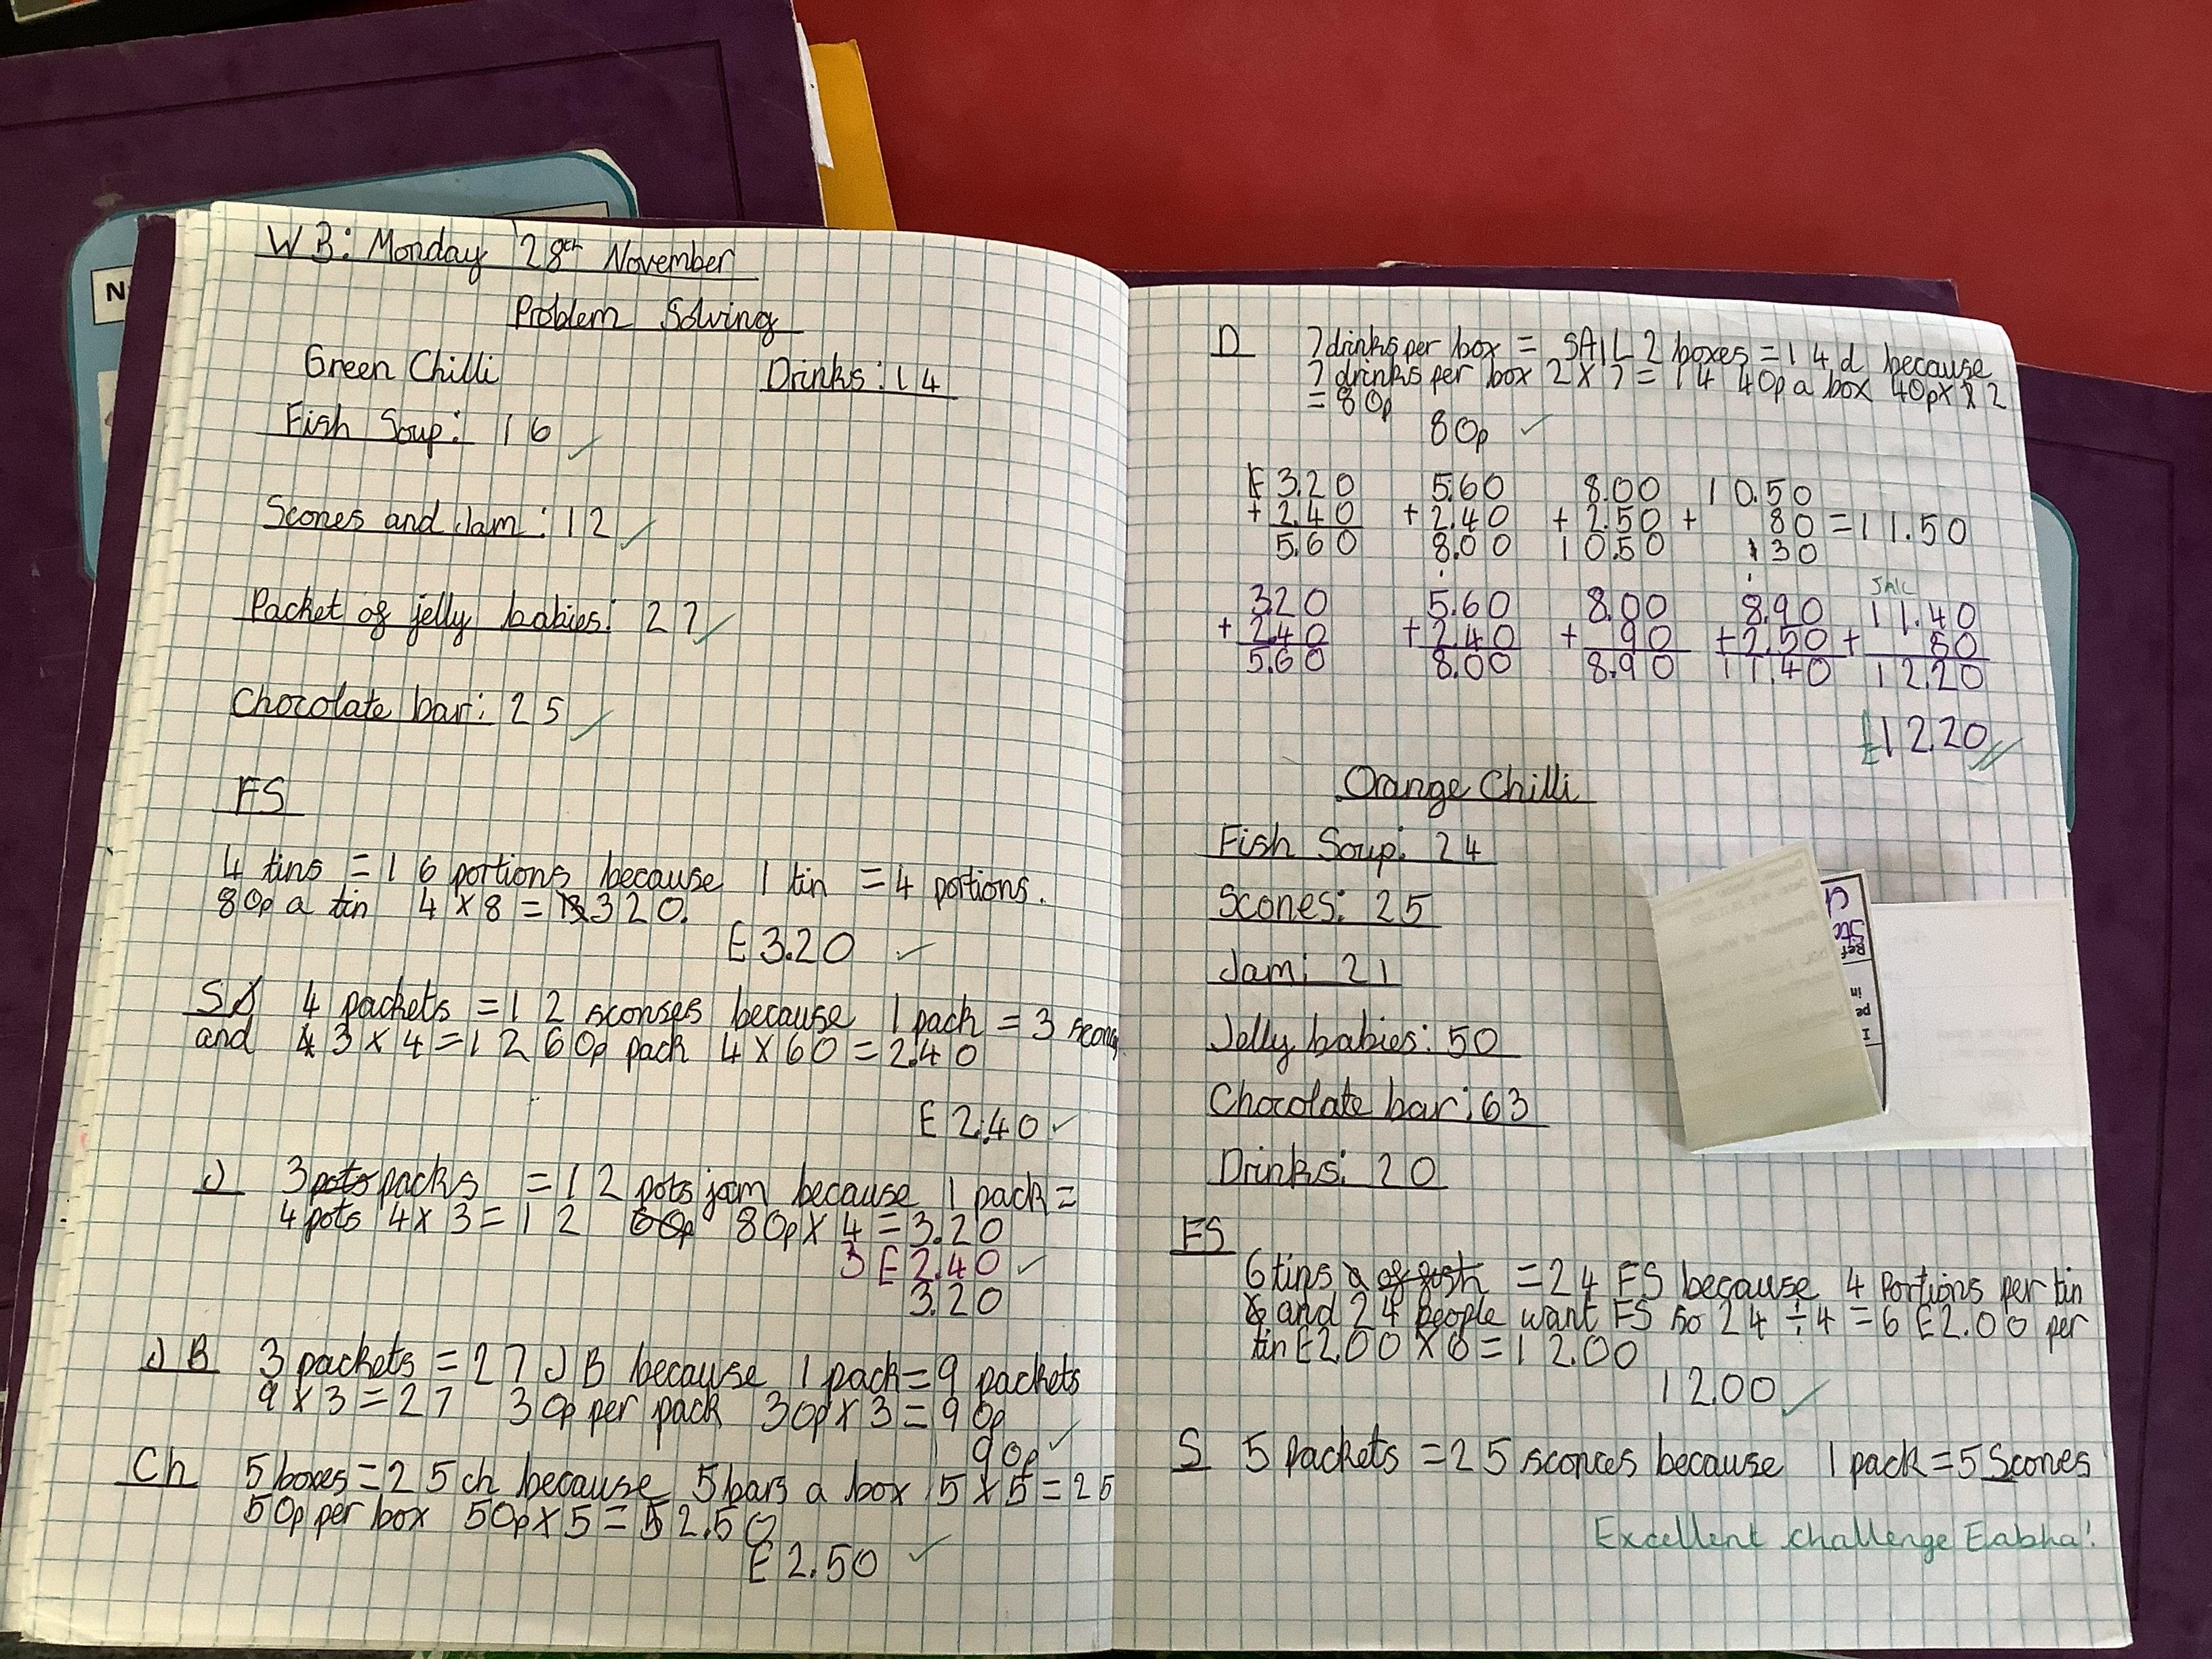 W B: Monday 28th November
Problem Solving
Green Chilli
Drinks: 14
Fish Soup: 16
Scones and Jam: 12
Packet of jelly babies: 27
Chocolate bar: 25
FS
4 tins = 16 portions because 1 tin = 4 portions.
80p a tin 4 x 8 = 320.
£3.20
S 4 packets = 12 sconses because 1 pack = 3 scones
and 3 x 4 = 12 60p pack 4 x 60 = 2.40
£2.40
J 3 pots packs = 12 pots jam because 1 pack =
4 pots 4 x 3 = 12 60p 80p x 4 = 3.20
3 £2.40
3.20
JB 3 packets = 27 JB because 1 pack = 9 packets
9 x 3 = 27 30p per pack 30p x 3 = 90p
90p
Ch 5 boxes = 25 ch because 5 bars a box 5 x 5 = 25
50p per box 50p x 5 = 2.50
£2.50
D 7 drinks per box = SAIL 2 boxes = 14 d because
7 drinks per box 2 x 7 = 14 40p a box 40p x 2
= 80p
80p
£3.20 5.60 8.00 10.50
+ 2.40 + 2.40 + 2.50 + 80 = 11.50
5.60 8.00 10.50 130
320 5.60 8.00 8.90 11.40
+ 2.40 + 2.40 + 90 + 2.50 + 80
5.60 8.00 8.90 11.40 12.20
£12.20
Orange Chilli
Fish Soup: 24
Scones: 25
Jam: 21
Jelly babies: 50
Chocolate bar: 63
Drinks: 20
FS
6 tins of fish = 24 FS because 4 Portions per tin
and 24 people want FS so 24 ÷ 4 = 6 £2.00 per
tin £2.00 x 6 = 12.00
12.00
S 5 Packets = 25 sconces because 1 pack = 5 Scones
Excellent challenge Eabha!